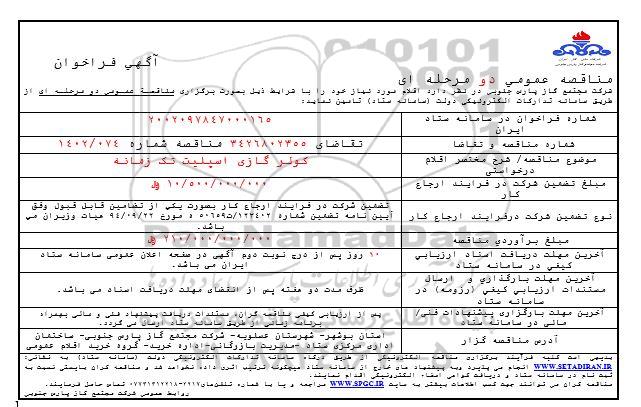 آگهي فراخوان
مناقصه عمومي دو مرحله اي
شرکت مجتمع گاز پارس جنوبي در نظر دارد اقلام مورد نياز خود را با شرايط ذيل بصورت برگزاري مناقصه عمومي دو مرحله اي از
طريق سامانه تدارکات الکترونيکي دولت (سامانه ستاد) تامين نمايد:
شماره فراخوان در سامانه ستاد ايران
۲۰۰۲۰۹۷۸۴۷۰۰۰۱۶۵
شماره مناقصه و تقاضا
تقاضاي ۳۴۲۶۸۰۲۳۵۵ مناقصه شماره ۱۴۰۲/۰۷۴
موضوع مناقصه/ شرح مختصر اقلام درخواستي
کولر گازي اسپليت تک زمانه
مبلغ تضمين شرکت در فرايند ارجاع کار
۱۰/۵۰۰/۰۰۰/۰۰۰ ريال
نوع تضمين شرکت درفرايند ارجاع کار
تضمين شرکت در فرايند ارجاع کار بصورت يکي از تضامين قابل قبول وفق
آيين نامه تضمين شماره ۱۲۳۴۰۲/ت۵۰۶۵۹ ه مورخ ۹۴/۰۹/۲۲ هيات وزيران مي
باشد.
مبلغ برآوردي مناقصه
۲۱۰/۰۰۰/۰۰۰/۰۰۰ ريال
آخرين مهلت دريافت اسناد ارزيابي کيفي در سامانه ستاد
۱۰ روز پس از درج نوبت دوم آگهي در صفحه اعلان عمومي سامانه ستاد
ايران مي باشد.
آخرين مهلت بارگذاري و ارسال مستندات ارزيابي کيفي (رزومه) در سامانه ستاد
ظرف مدت دو هفته پس از انقضاي مهلت دريافت اسناد مي باشد.
آخرين مهلت بارگزاري پيشنهادات فني/مالي در سامانه ستاد
پس از ارزيابي کيفي مناقصه گران، مستندات دريافت پيشنهاد فني و مالي بهمراه
برنامه زماني از طريق سامانه ستاد ارسال مي گردد.
آدرس مناقصه گزار
استان بوشهر- شهرستان عسلويه- شرکت مجتمع گاز پارس جنوبي- ساختمان
اداري مرکزي ستاد -مديريت بازرگاني-اداره خريد- گروه خريد اقلام عمومي
بديهي است کليه فرآيند برگزاري مناقصه الکترونيکي از طريق درگاه سامانه تدارکات الکترونيکي دولت (سامانه ستاد) به نشاني:
WWW.SETADIRAN.IR انجام مي پذيرد وبه پيشنهاد هاي خارج از سامانه ستاد هيچگونه ترتيب اثري داده نخواهد شد و مناقصه گران بايستي نسبت به
ثبت نام در سامانه ستاد و دريافت گواهي امضاء الکترونيکي اقدام نمايند.
مناقصه گران مي توانند جهت کسب اطلاعات بيشتر به سايت WWW.SPGC.IR مراجعه و يا با شماره تلفن‌هاي ۰۷۷۳۱۳۱۲۲۱۸-۲۲۱۷ تماس حاصل فرمايند.
روابط عمومي شرکت مجتمع گاز پارس جنوبي